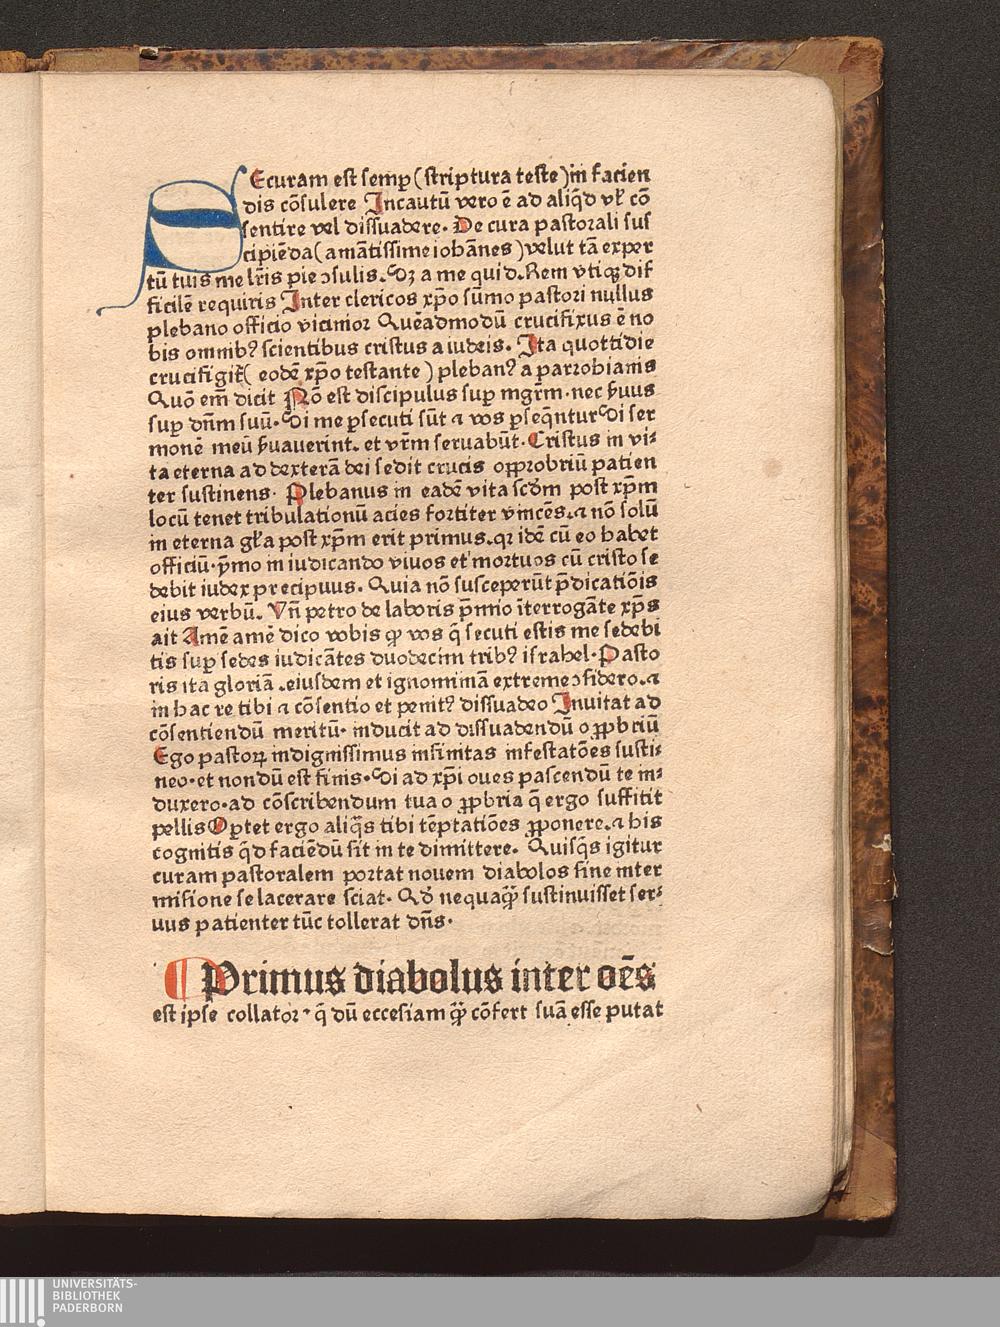 SEcuram est semꝑ (scriptura teste) in facien
dis cōsulere Incautū vero ē ad aliq̄d vl̛ cō
sentire vel dissuadere. De cura pastorali sus
cipiēda (amātissime iohānes) velut tā exper
tū tuis me lr̄is pie ꝯsulis. Sꝫ a me quid. Rem vtiqꝫ dif
ficilē requiris Inter clericos xp̄o sūmo pastori nullus
plebano officio vicinior Quēadmodū crucifixus ē no
bis omnibꝰ scientibus cristus a iudeis. Ita quottidie
crucifigit̄ (eodē xp̄o testante) plebanꝰ a parrobianis
Quō em̄ dicit Nō est discipulus suꝑ mgr̄m. nec ẜuus
suꝑ dn̄m suū. Si me ꝑsecuti sūt ⁊ vos ꝑseq̄ntur Si ser
monē meū ẜuauerint. et vr̄m seruabūt. Cristus in vi⸗
ta eterna ad dexterā dei sedit crucis opprobriū patien
ter sustinens. Plebanus in eadē vita scd̄m post xp̄m
locū tenet tribulationū acies fortiter vincēs. ⁊ nō solū
in eterna gl̛a post xp̄m erit primus. qꝛ idē cū eo habet
officiū. p̄mo in iudicando viuos et mortuos cū cristo se
debit iudex precipuus. Quia nō susceperūt p̄dicatiōis
eius verbū. Vn̄ petro de laboris p̄mio īterrogāte xp̄s
ait Amē amē dico vobis ꝙ vos q̄ secuti estis me sedebi
tis suꝑ sedes iudicātes duodecim tribꝰ israhel. Pasto
ris ita gloriā. eiusdem et ignominiā extreme ꝯfidero. ⁊
in hac re tibi ⁊ cōsentio et penitꝰ dissuadeo Inuitat ad
cōsentiendū meritū. inducit ad dissuadendū oꝓpbriū
Ego pastoꝝ indignissimus infinitas infestatōes susti⸗
neo. et nondū est finis. Si ad xp̄i oues pascendū te in⸗
duxero. ad cōscribendum tua oꝓpbria q̄ ergo suffitit
pellis Oꝑtet ergo aliq̄s tibi tēptatiōes ꝓponere. ⁊ his
cognitis q̄d faciēdū sit in te dimittere. Quisq̄s igitur
curam pastoralem portat nouem diabolos sine inter
misione se lacerare sciat. Qd̄ nequaꝙ̄ sustinuisset ser⸗
uus patienter tūc tollerat dn̄s.
¶ Primus diabolus inter oēs
est ipse collator. q̄ dū eccesiam ꝙ̄ cōfert suā esse putat
UNIVERSITÄTS-
BIBLIOTHEK
PADERBORN